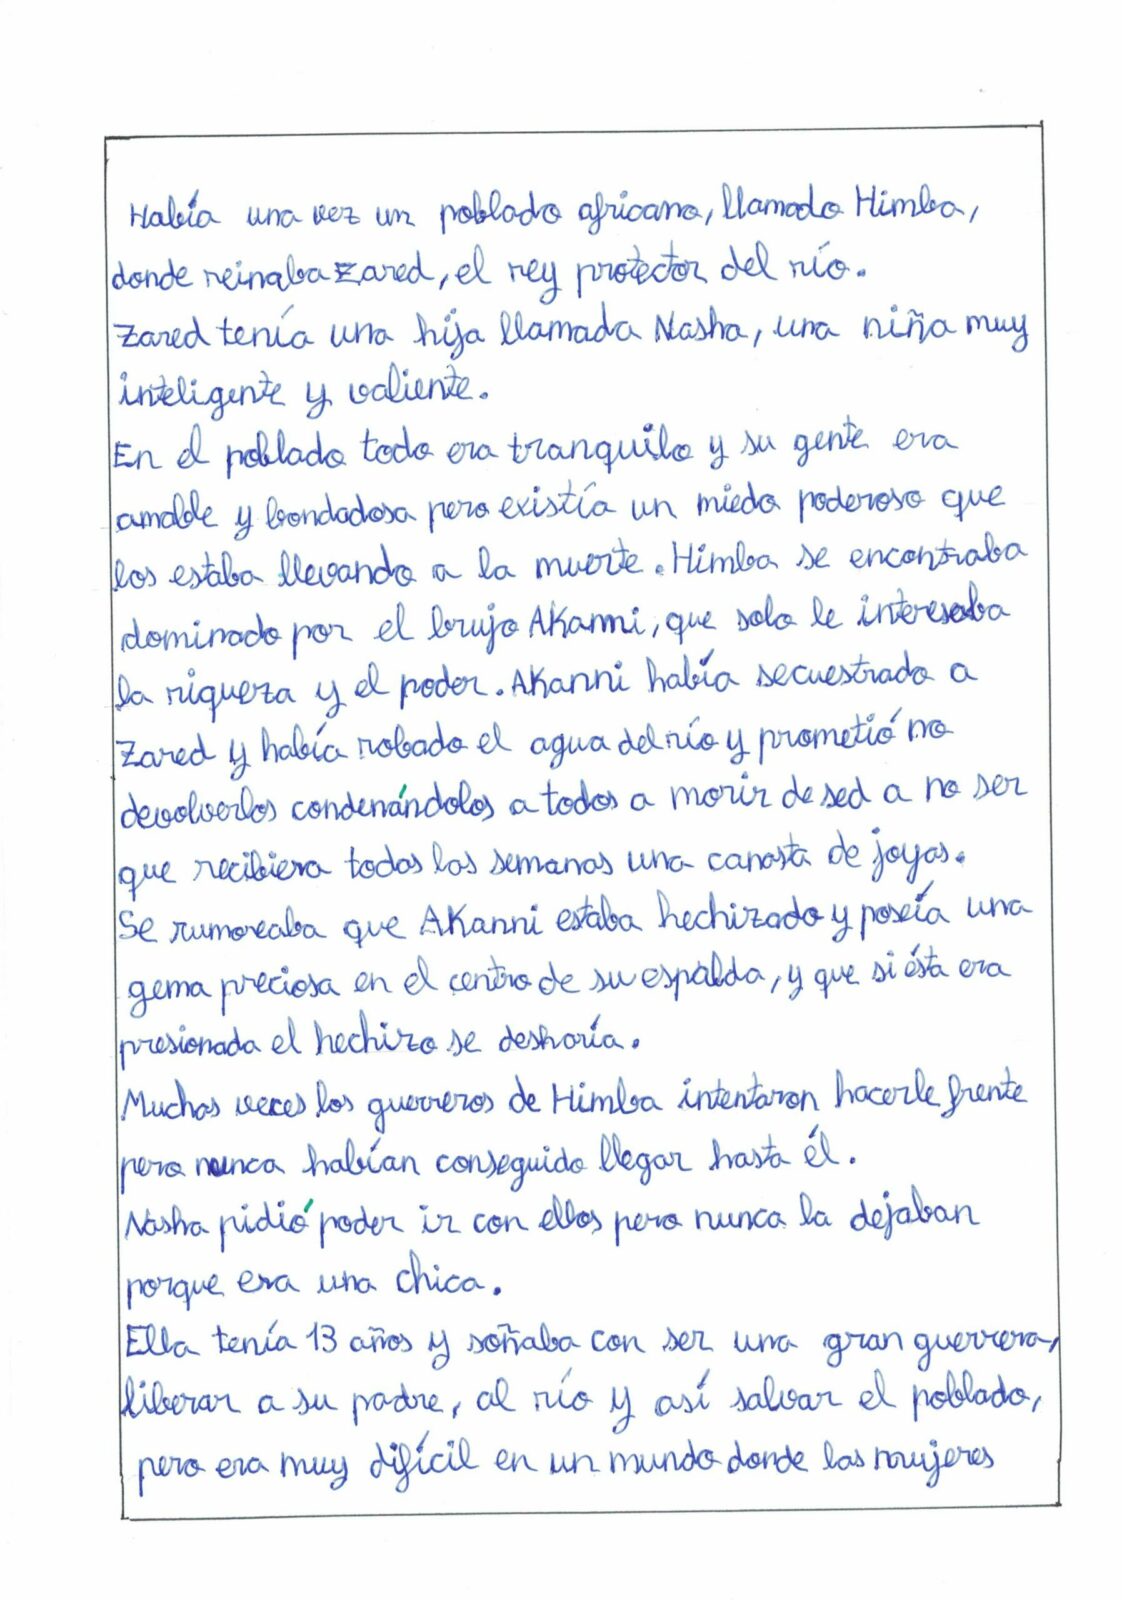 Había una vez un poblado africano, llamado Himba,
donde reinaba Zared, el rey protector del río.
Zared tenía una hija llamada Nasha, una niña muy
inteligente y valiente.
En el poblado todo era tranquilo y su gente era
amable y bondadosa pero existía un miedo poderoso que
los estaba llevando a la muerte. Himba se encontraba
dominado por el brujo AKanni, que solo le interesaba
la riqueza y el poder. AKanni había secuestrado a
Zared y había robado el agua del río y prometió no
devolverlos condenándolos a todos a morir de sed a no ser
que recibiera todas las semanas una canasta de joyas.
Se rumoreaba que AKanni estaba hechizado y poseía una
gema preciosa en el centro de su espalda, y que si ésta era
presionada el hechizo se desharía.
Muchas veces los guerreros de Himba intentaron hacerle frente
pero nunca habían conseguido llegar hasta él.
Nasha pidió poder ir con ellos pero nunca la dejaban
porque era una chica.
Ella tenía 13 años y soñaba con ser una gran guerrera,
liberar a su padre, al río y así salvar el poblado,
pero era muy difícil en un mundo donde las mujeres